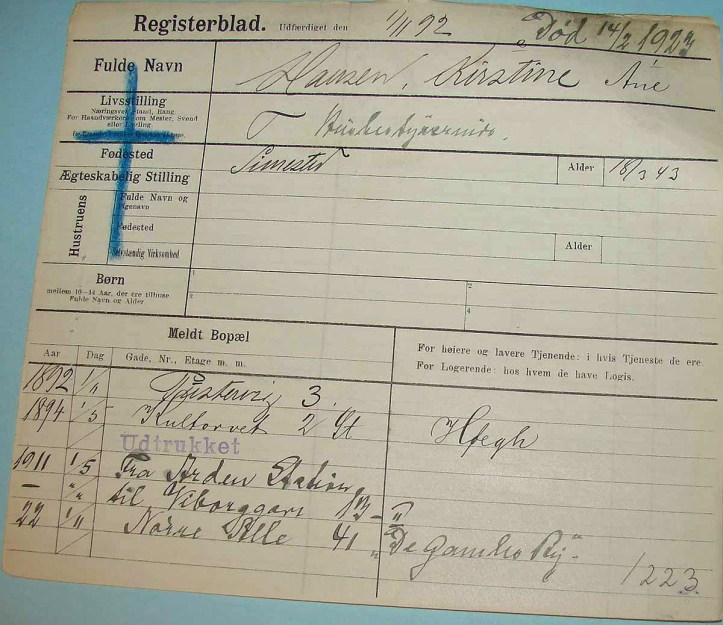 Registerblad. Udfærdiget den 1/11 92 Død 14/2 1923
Fulde Navn Hansen, Kirstine Ane
Livsstilling
Næringsvei, Stand, Rang
For Haandværkere om Mester, Svend
eller Lærling
Fødested Simested Alder 18/3 43
Ægteskabelig Stilling
Hustruens
Fulde Navn og
Pigenavn
Fødested Alder
Selvstændig Virksomhed
Børn
mellem 10—14 Aar, der ere tilhuse
Fulde Navn og Alder
1
2
3
4
Meldt Bopæl
For høiere og lavere Tjenende: i hvis Tjeneste de ere.
For Logerende: hos hvem de have Logis.
Aar Dag Gade, Nr., Etage m. m.
1892 1/11 3.
1894 1/5 Kultorvet 2 St Høegh
Udtrukket
1911 1/5 Fra Arden Station
— " til Viborggade 13 - II
22 1/11 Nørre Alle 41 " De Gamles By "
1223.